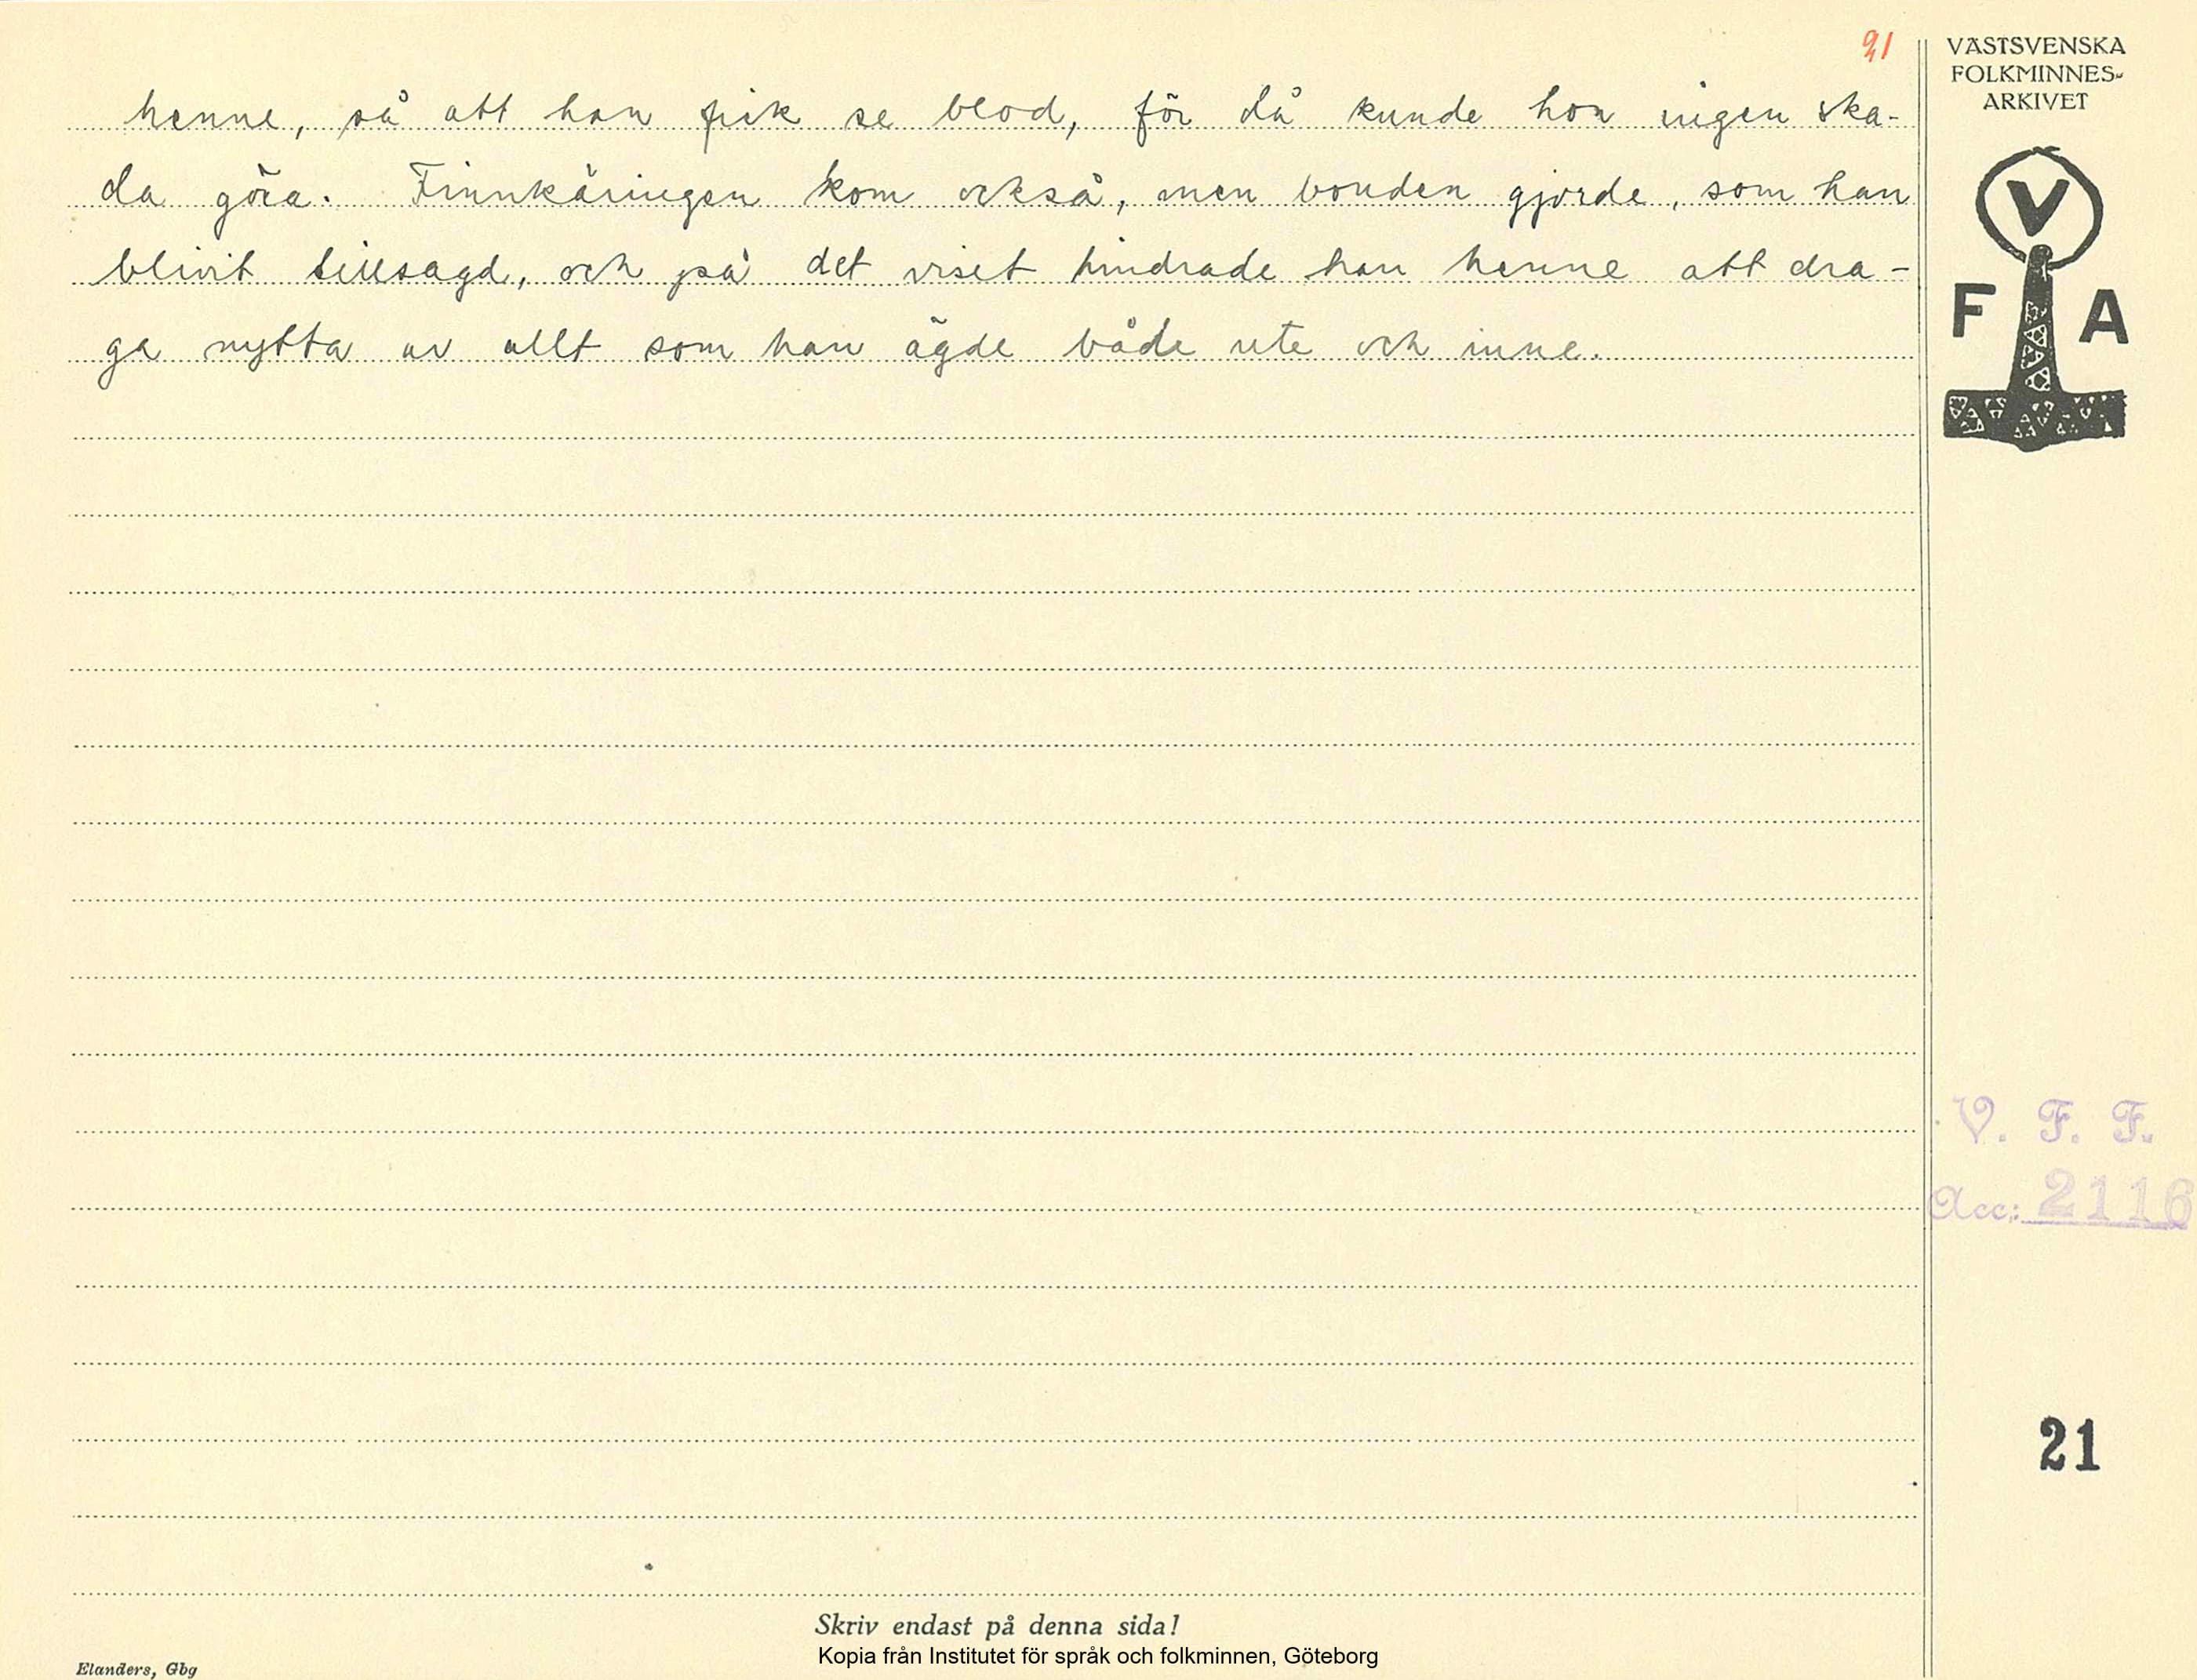 21
henne, så att han fick se blod, för då kunde hon ingen ska-
da göra. Finnkäringen kom också, men bonden gjorde, som han
blivit tillsagd, och på det viset hindrade han henne att dra-
ga nytta av allt som han ägde både ute och inne.
VÄSTSVENSKA
FOLKMINNES-
ARKIVET
V
F A
V. F. F.
Acc: 2116
21
Skriv endast på denna sida!
Kopia från Institutet för språk och folkminnen, Göteborg
Elanders, Gbg